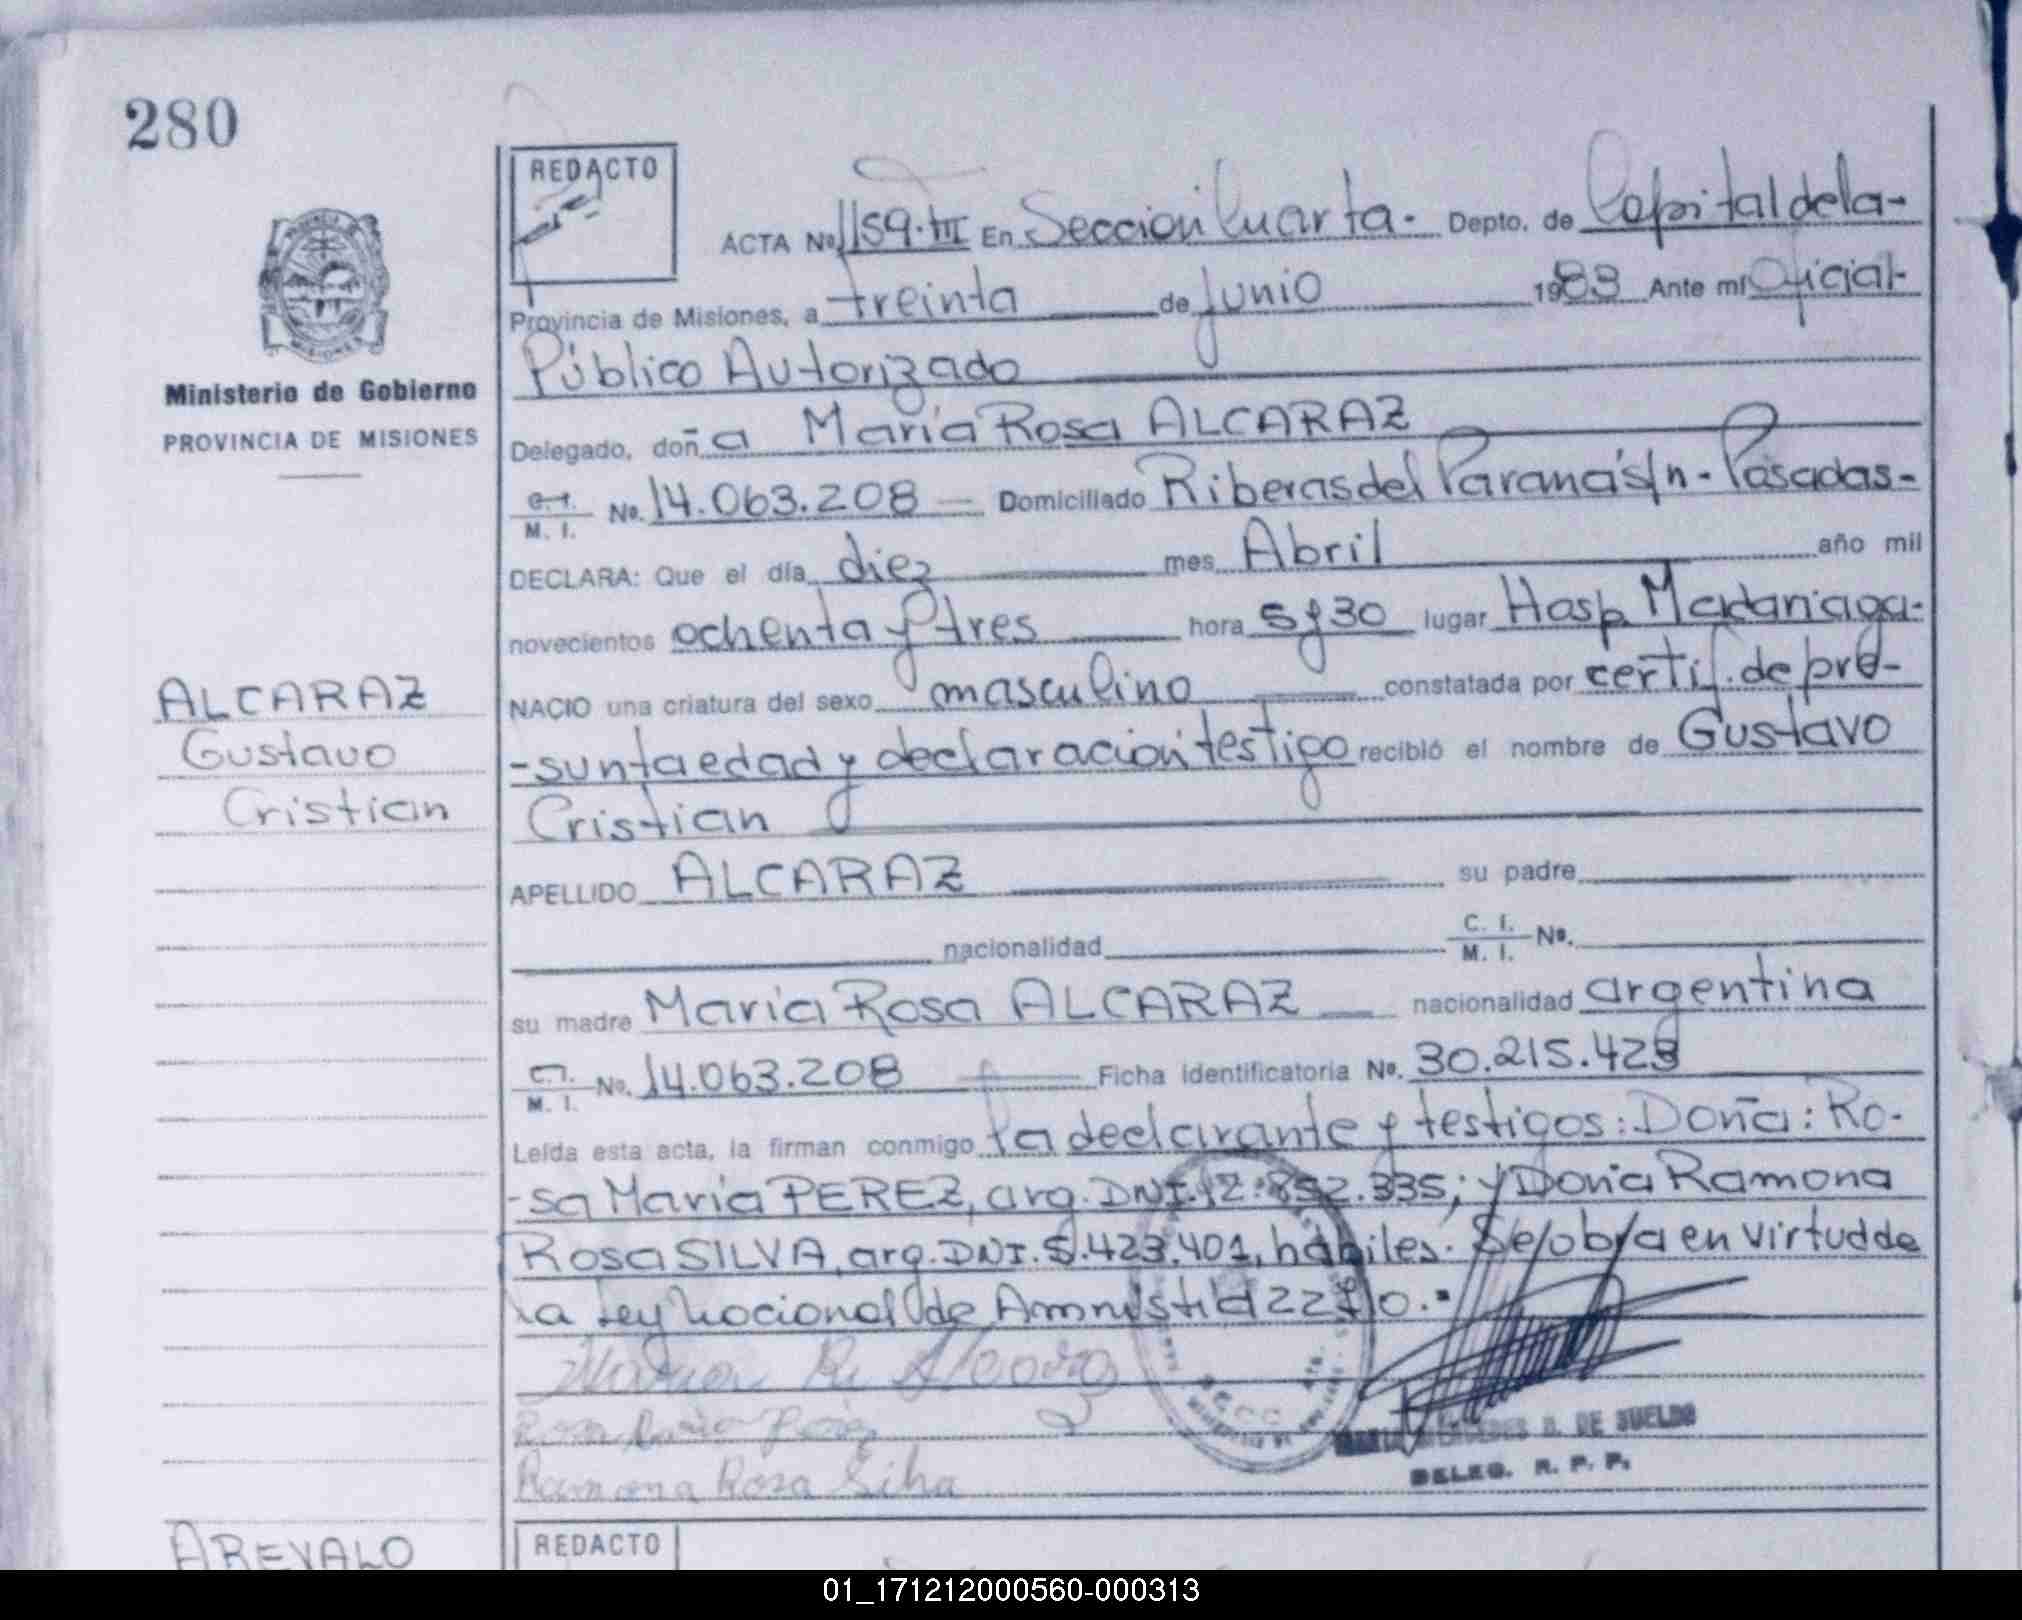 280
REDACTO
ACTA No. 1159.III En Seccion Cuarta. Depto. de Capital de la-
Provincia de Misiones, a treinta de Junio 1983 Ante mí Oficial-
Público Autorizado
Ministerio de Gobierno
PROVINCIA DE MISIONES
Delegado, doña María Rosa ALCARAZ
C. I. / M. I. No. 14.063.208 Domiciliado Riberas del Paraná s/n - Posadas-
DECLARA: Que el día diez mes Abril año mil
novecientos ochenta y tres hora 5 y 30 lugar Hosp. Madariaga-
NACIO una criatura del sexo masculino constatada por certif. de pre-
-sunta edad y declaracion testigo recibió el nombre de Gustavo
Cristian
ALCARAZ
Gustavo
Cristian
APELLIDO ALCARAZ su padre
nacionalidad C. I. / M. I. No.
su madre María Rosa ALCARAZ nacionalidad argentina
C. I. / M. I. No. 14.063.208 Ficha identificatoria No. 30.215.423
Leída esta acta, la firman conmigo la declarante y testigos: Doña: Ro-
-sa María PEREZ, arg. DNI. 12.852.335; y Doña Ramona
Rosa SILVA, arg. DNI. 5.423.401, hábiles. Se/ob/a en virtud de
la Ley Nacional de Amnistia 22
Rosa
Ramona Rosa Silva
DE SUELDO
DELEG. R. P. P.
AREVALO
REDACTO
01_171212000560-000313